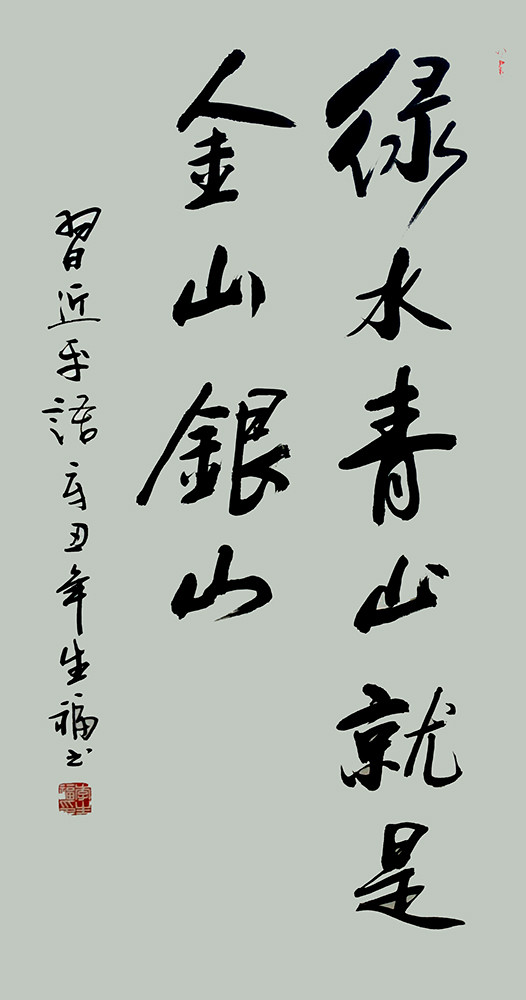 绿水青山就是
金山銀山
習近平語 辛丑年生福书